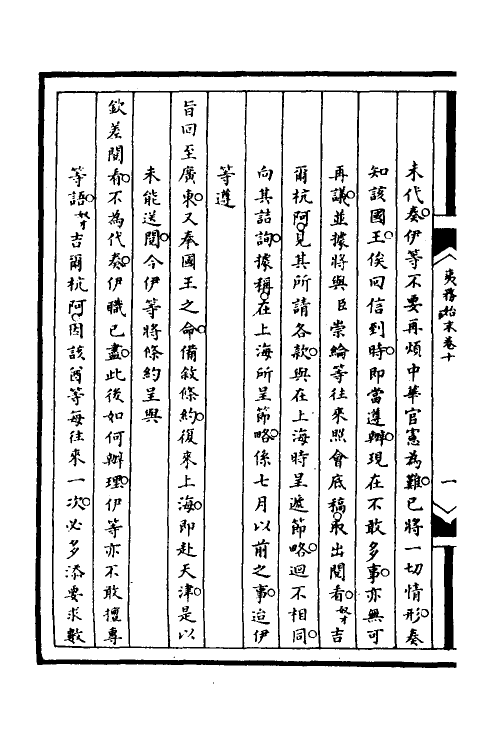 未代奏。伊等不要再煩中華官憲為難。已將一切情形奏
知該國王。俟回信到時。即當遵辦。現在不敢多事。亦無可
再議。並據將與臣崇綸等往來照會底稿。取出閱看。奴才吉
爾杭阿。見其所請各款。與在上海時呈遞節略。迥不相同。
向其詰詢。據稱。在上海所呈節略。係七月以前之事。迨伊
等遵
旨回至廣東。又奉國王之命。備敘條約。復來上海。即赴天津。是以
未能送閱。今伊等將條約呈與
欽差閱看。不為代奏。伊職已盡。此後如何辦理。伊等亦不敢擅專
等語。奴才吉爾杭阿。因該酋等每往來一次。必多添要求數
夷務始末卷十
一